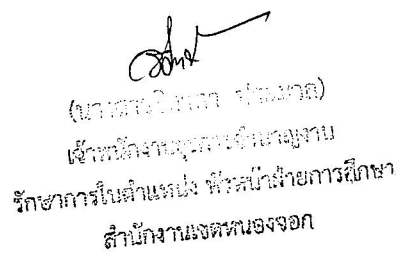 (นางสาว
เจ้าพนักงานธุรการชำนาญงาน
รักษาการในตำแหน่ง หัวหน้าฝ่ายการศึกษา
สำนักงานเขตหนองจอก